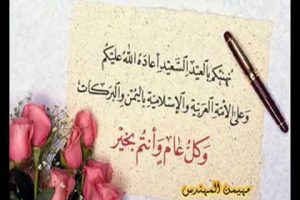 نهنئكم بالعيد السعيد أعاده الله عليكم
وعلى الأمة العربية والإسلامية باليمن والبركات
وكل عام وأنتم بخير
مهيمن المهندس